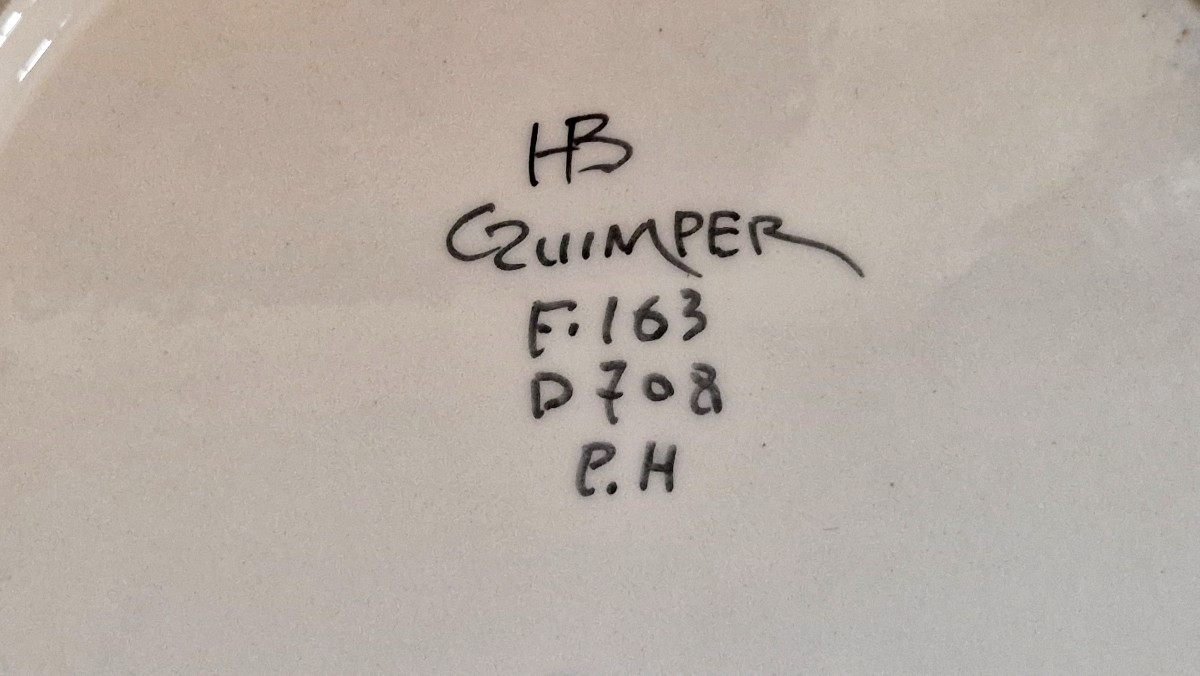 HB
QUIMPER
F.163
D708
P.H